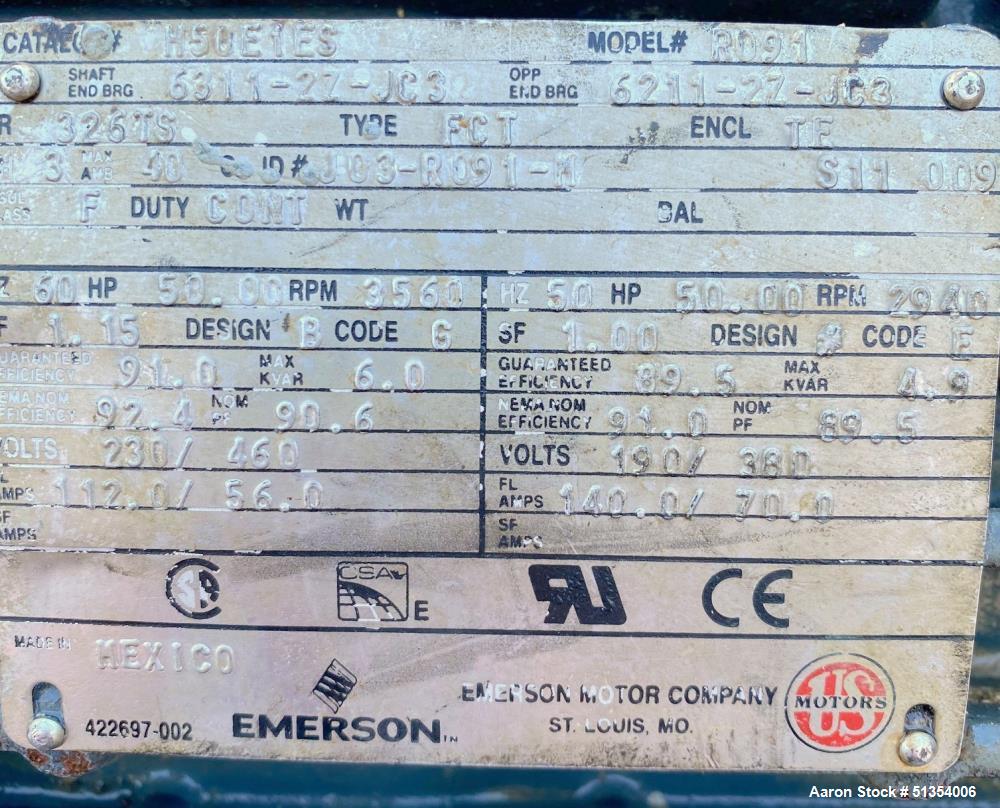 CATALOG# H50E1ES MODEL# R091
SHAFT END BRG 6311-2Z-JC3 OPP END BRG 6211-2Z-JC3
326TS TYPE FCT ENCL TE
3 MAX AMB 40 ID# J03-R091-M S11 009
F DUTY CONT WT BAL
60 HP 50.00 RPM 3560 HZ 50 HP 50.00 RPM 2940
1.15 DESIGN B CODE G SF 1.00 DESIGN CODE F
GUARANTEED EFFICIENCY 91.0 MAX KVAR 6.0 GUARANTEED EFFICIENCY 89.5 MAX KVAR 4.9
NEMA NOM EFFICIENCY 92.4 NOM PF 90.6 NEMA NOM EFFICIENCY 91.0 NOM PF 89.5
VOLTS 230/ 460 VOLTS 190/ 380
AMPS 112.0/ 56.0 FL AMPS 140.0/ 70.0
SF AMPS SF AMPS
CSA E CE
MADE IN MEXICO
422697-002 EMERSON EMERSON MOTOR COMPANY
ST. LOUIS, MO.
US MOTORS
Aaron Stock # 51354006